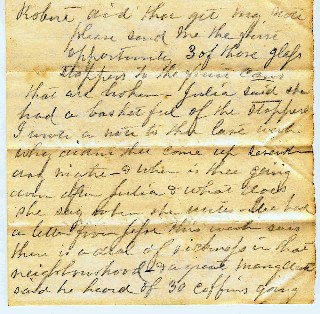 Robert did thee get my note
please send me the first
opportunity 3 of those glass
stoppers to the fruit cans
that are broken - Julia said she
had a basketful of the stoppers
I wrote a note to thee last week
Why didn't thee come up
day & when is thee going
down after Julia & what does
she say when she writes - We had
a letter from this week says
there is a deal of sickness in that
neighbourhood & a great many
said he heard of 30 coffins going